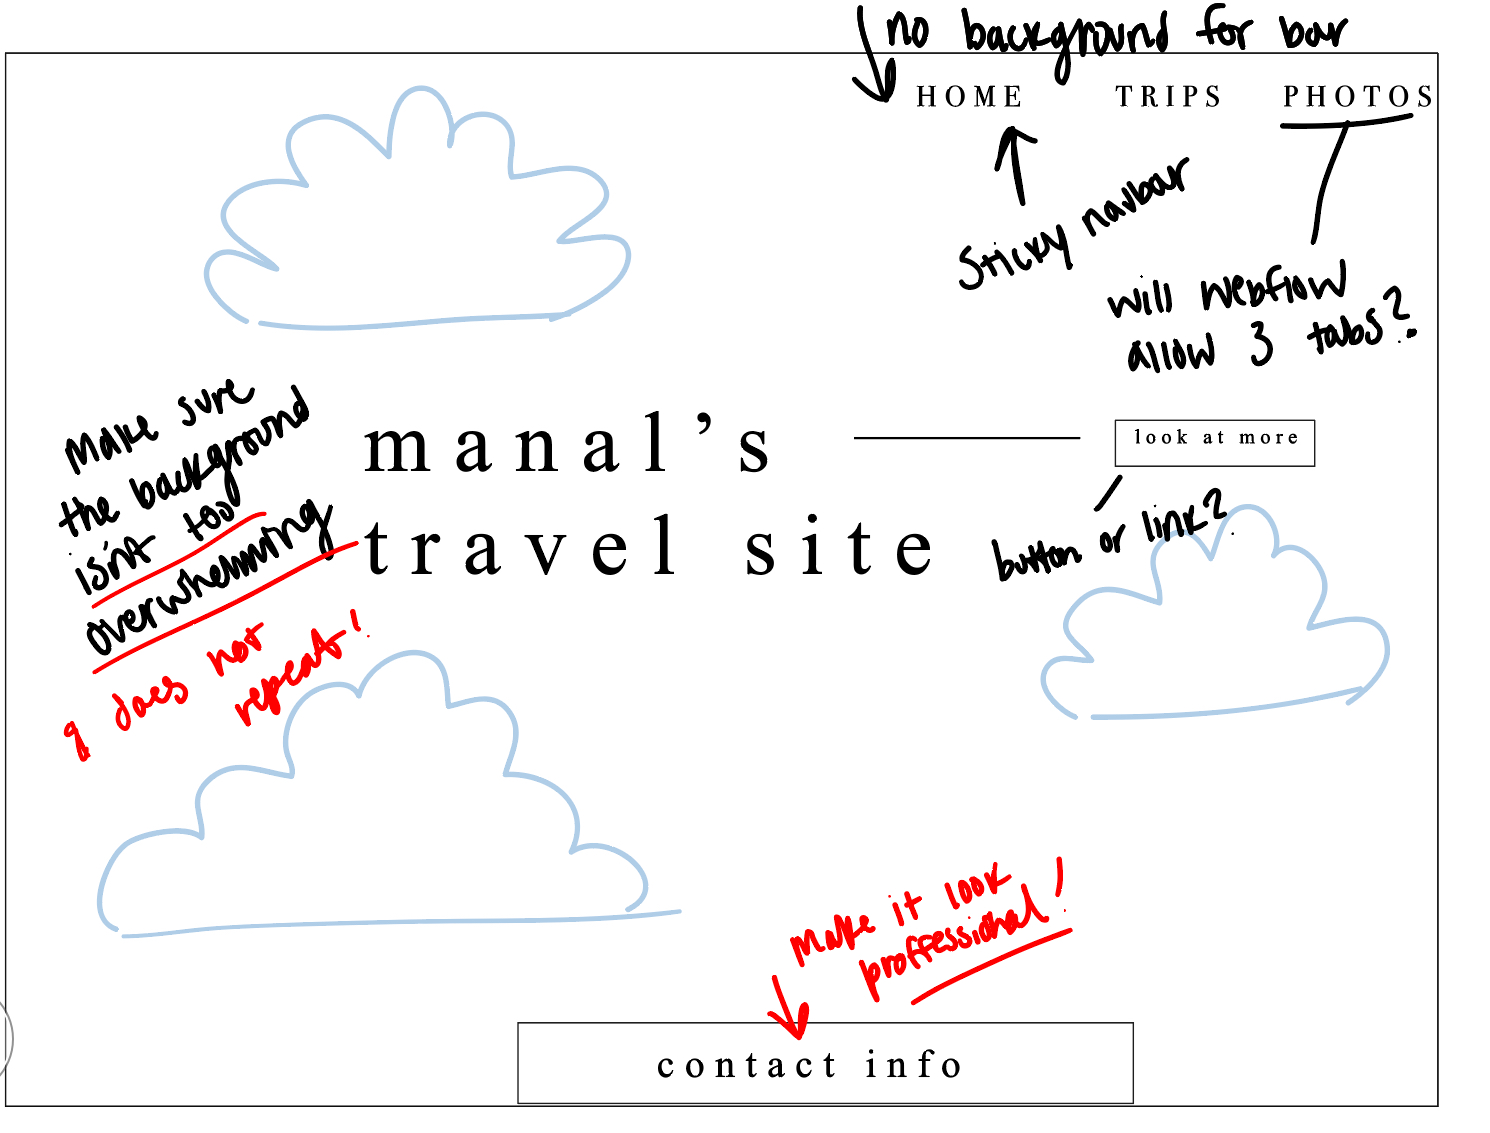 no background for bar
HOME TRIPS PHOTOS
sticky navbar
will webflow
allow 3 tabs?
make sure
the background
isn't too
overwhelming
& does not
repeat!
manal's
travel site
look at more
button or link?
make it look
proffessional!
contact info